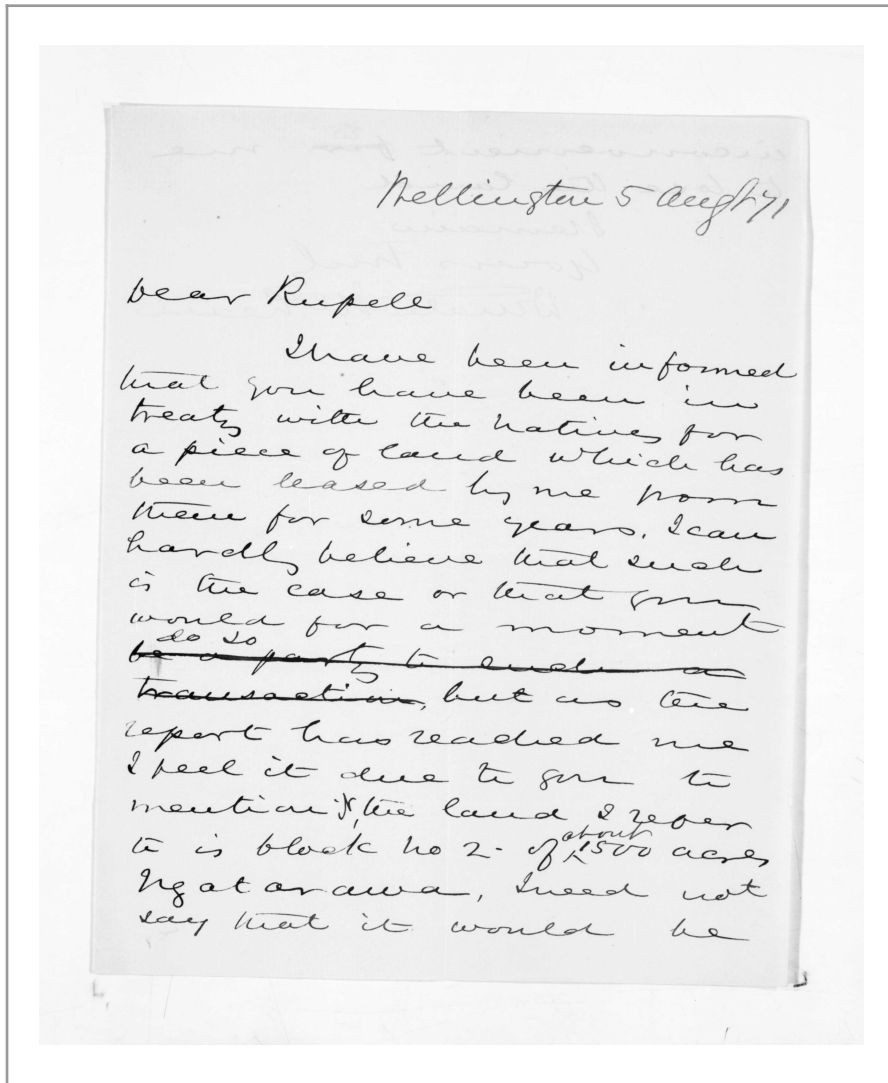 Wellington 5 Augt 71
Dear Russell
I have been informed
that you have been in
treaty with the natives for
a piece of land which has
been leased by me from
them for some years. I can
hardly believe that such
is the case or that you
would for a moment
do so
be a party to such a
transaction, but as the
report has reached me
I feel it due to you to
mention it, the land I refer
about
to is block no 2 - of 1500 acres
Ngatarawa, I need not
say that it would be